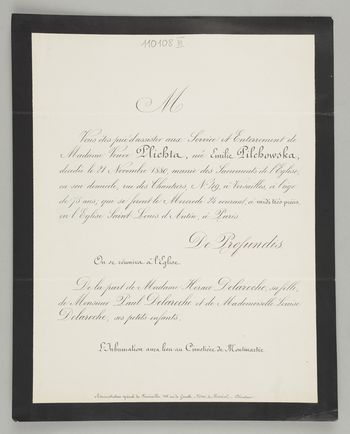 110108 II
M
Vous êtes prié d'assister aux Service et Enterrement de
Madame Veuve Plichta, née Emilie Pilchowska,
décédée le 21 Novembre 1880, munie des Sacrements de l'Eglise,
en son domicile, rue des Chantiers, N° 49, à Versailles, à l'âge
de 75 ans, qui se feront le Mercredi 24 courant, à midi très précis,
en l'Eglise Saint Louis d'Antin, à Paris.
De Profundis
On se réunira à l'Eglise.
De la part de Madame Horace Delaroche, sa fille,
de Monsieur Paul Delaroche et de Mademoiselle Louise
Delaroche, ses petits enfants.
L'Inhumation aura lieu au Cimetière de Montmartre.
Administration spéciale de Funérailles